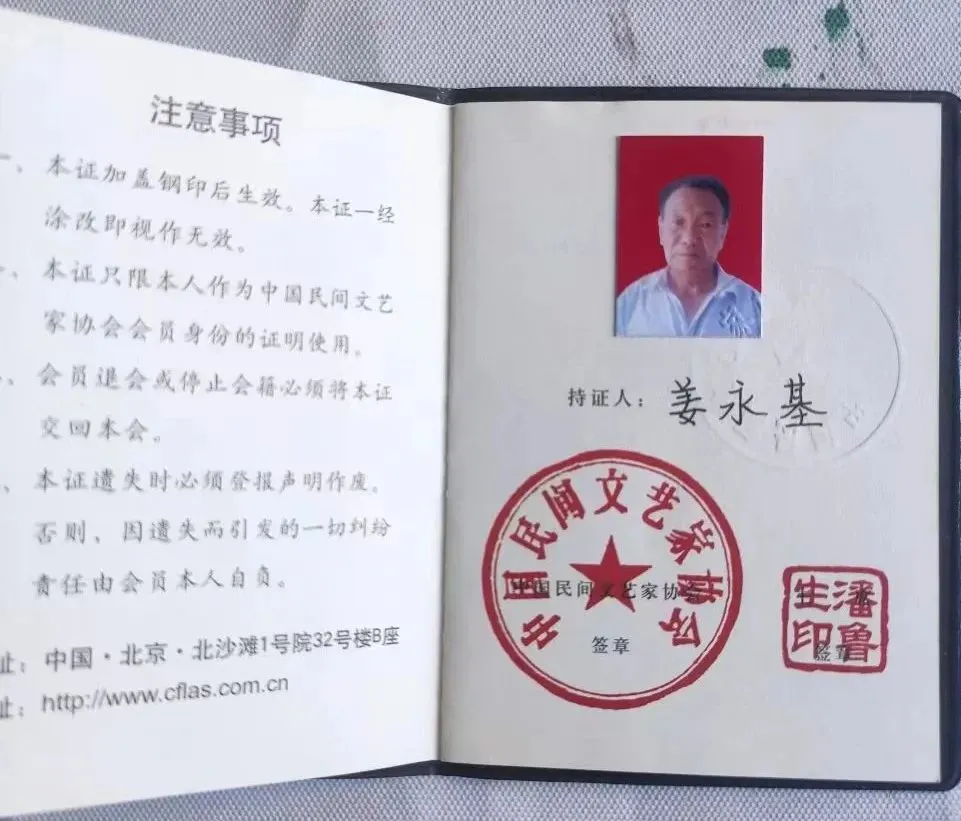 注意事项
一、本证加盖钢印后生效。本证一经
涂改即视作无效。
、本证只限本人作为中国民间文艺
家协会会员身份的证明使用。
、会员退会或停止会籍必须将本证
交回本会。
、本证遗失时必须登报声明作废。
否则，因遗失而引发的一切纠纷
责任由会员本人自负。
址：中国·北京·北沙滩1号院32号楼B座
址：http://www.cflas.com.cn
持证人：姜永基
中国民间文艺家协会
中国民间文艺家协会
签章
潘鲁生印
签章